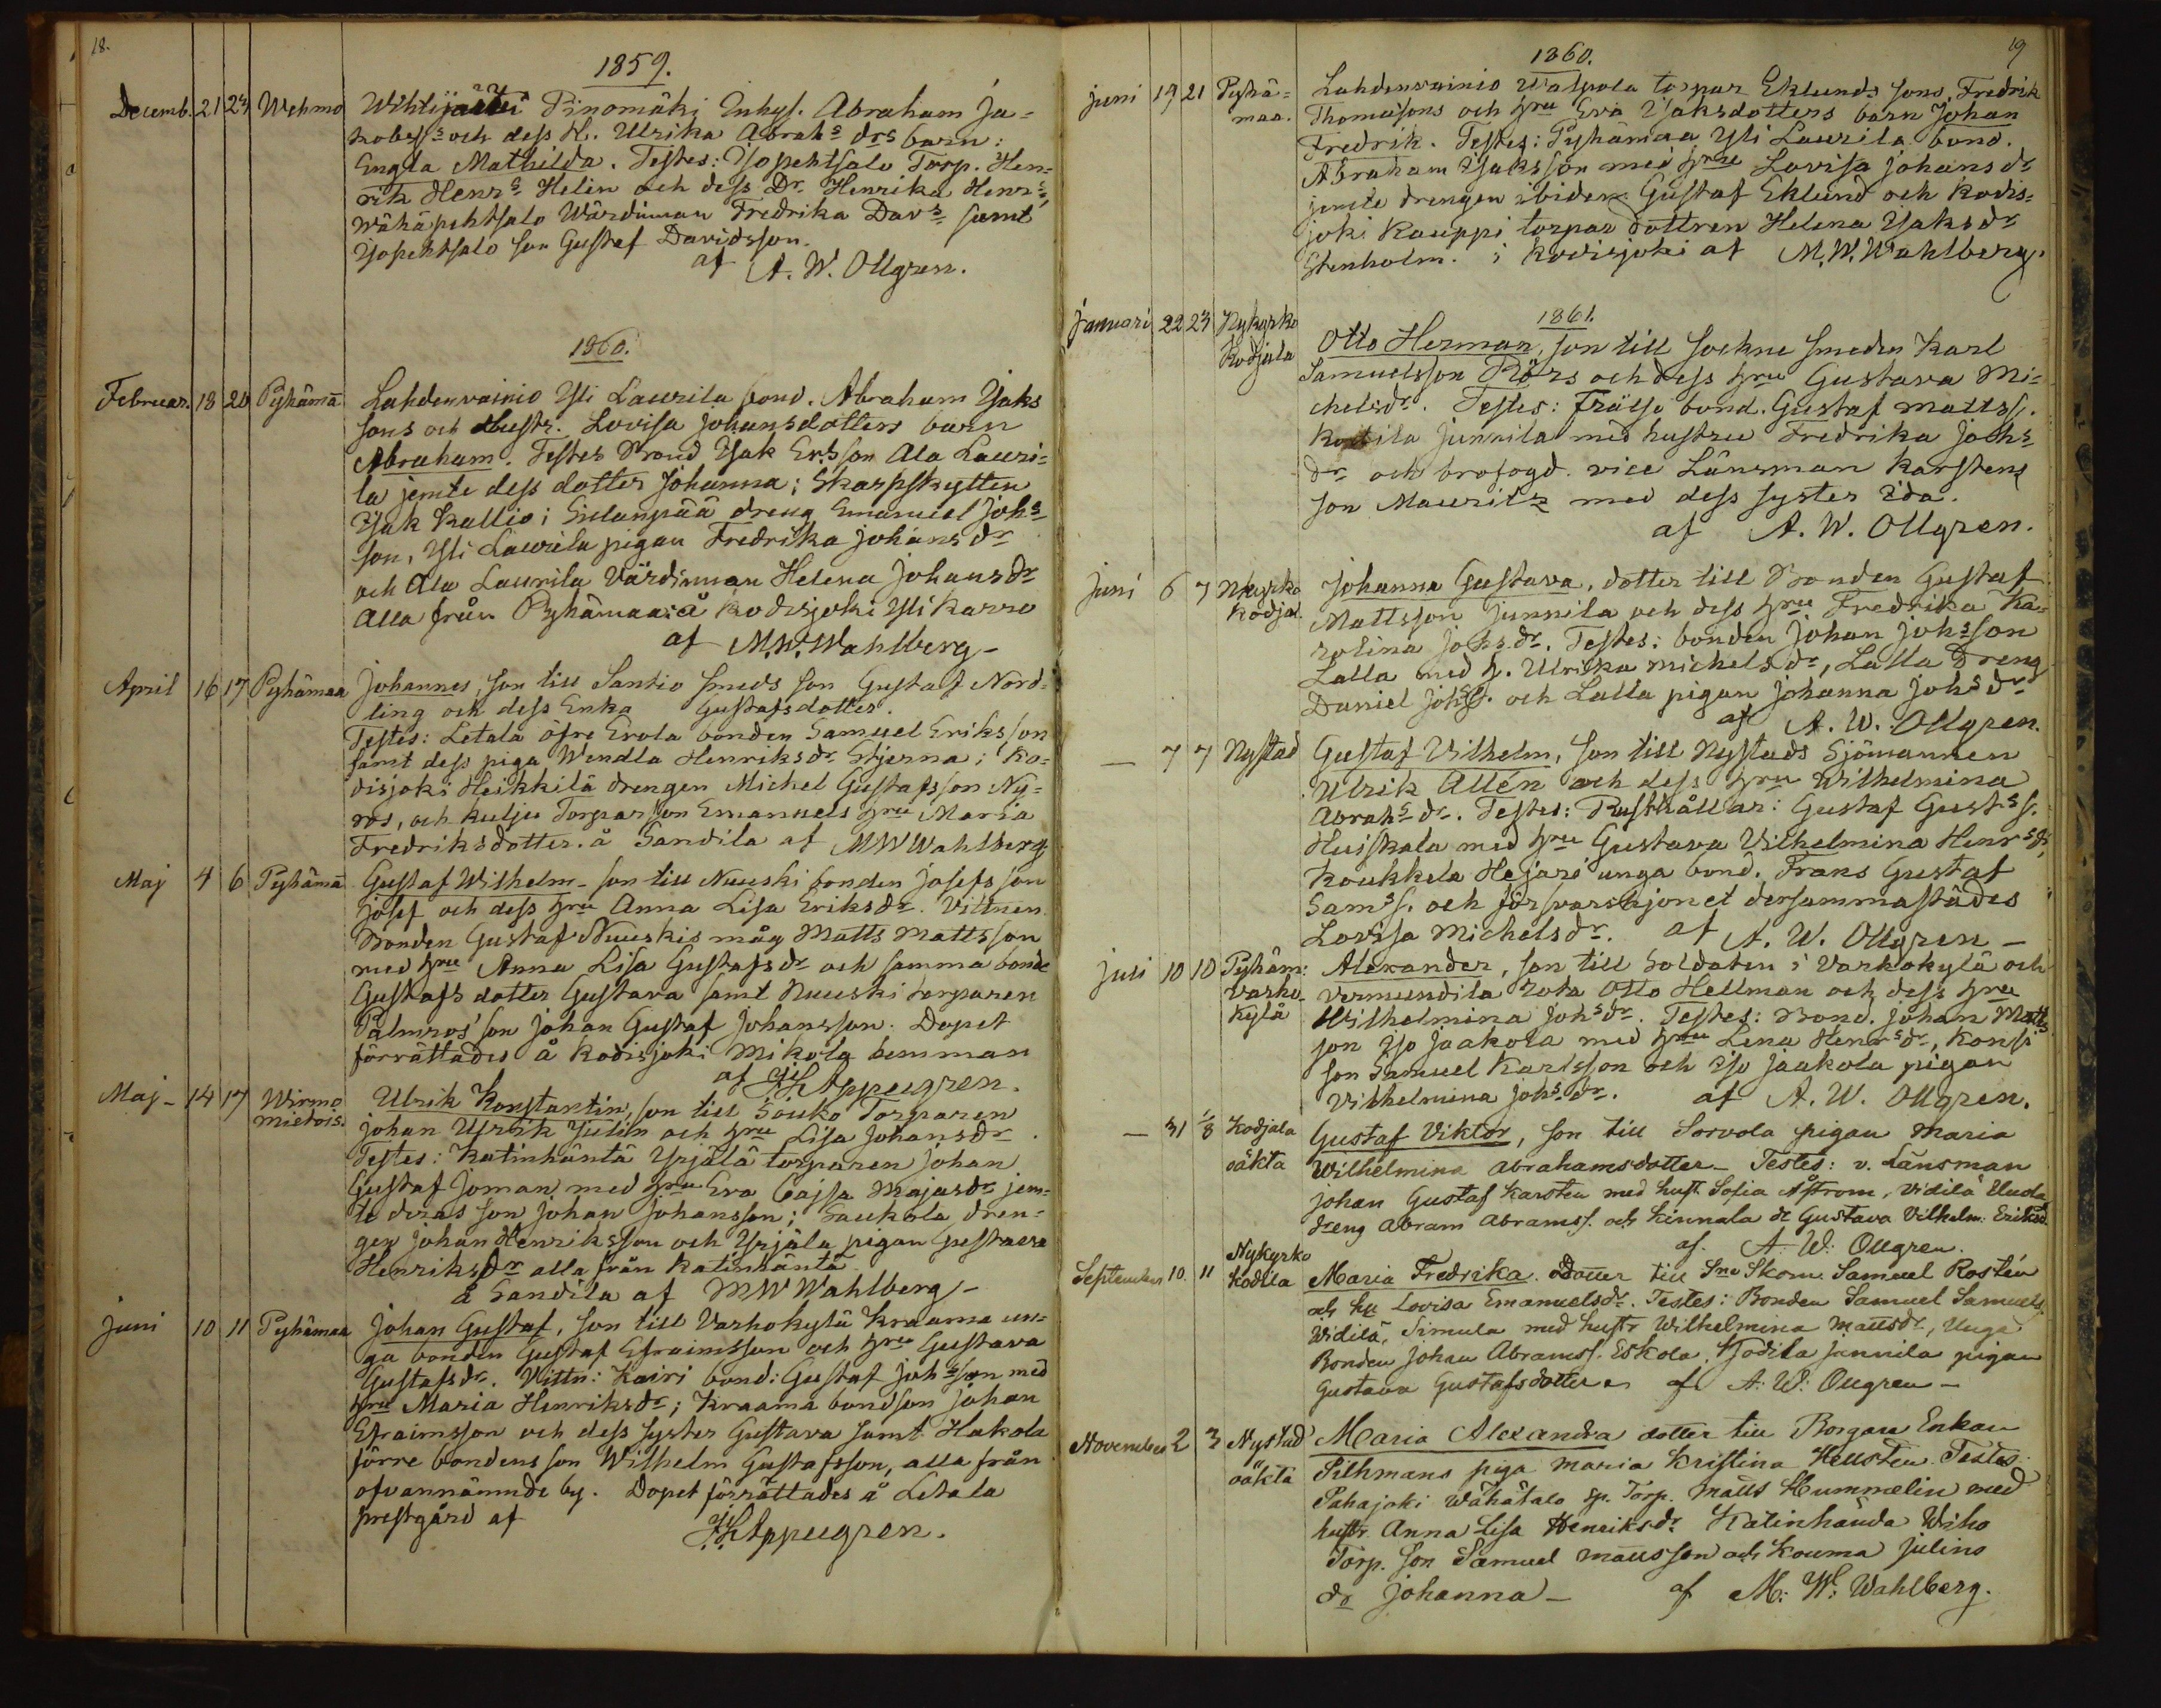 18.
1859.
Decemb. 21 23 Wehmo Wihtijärvi Pinomäki Inhys. Abraham Ja=
kobss och dess H. Ulrika Abrahs drs barn:
Engla Mathilda. Testes: Isopehtsalo Torp. Hen=
rik Henrs Helin och dess Dr Henrika Henrs,
Wähäpehtsalo Wärdinnan Fredrika Davs samt
Isopehtsalo son Gustaf Davidsson.
af A. W. Ollgren.
1860.
Februar. 18 20 Pyhämä Lahdenvainio Yli Laurila bond. Abraham Isaks
sons och Hustr. Lovisa Johansdotters barn
Abraham. Testes Brond Isak Ersson Ala Lauri=
la jemte dess dotter Johanna; Skarpskytten
Isak Kallio; dreng Emanuel Johs
son, Yli Laurila pigan Fredrika Johans dr
och Ala Laurila Värdinnan Helena Johansdr
Alla från Pyhämaa: å Kodisjoki Yli Karro
af M.W. Wahlberg -
April 16 17 Pyhämaa Johannes, son till Santio smeds son Gustaf Nord=
ling och dess Enka Gustafsdotter.
Testes: Letala öfre Erola bonden Samuel Eriksson
samt dess piga Wendla Henriksdr Stjerna; Ko=
disjoki Heikkilä drengen Michel Gustafsson Ny=
ros, och Kulju Torpar son Emanuels hru Maria
Fredriksdotter. å Sandila af M W Wahlberg
Maj 4 6 Pyhämä Gustaf Wilhelm - son till Nuuski bonden Josefs son
Josef och dess hru Anna Lisa Eriksdr. Vittnen
Bonden Gustaf Nuuskis måg Matts Mattsson
med hru Anna Lisa Gustafsdr och samma bonde
Gustafs dotter Gustava samt Nuuski torparen
Palmros' son Johan Gustaf Johansson. Dopet
förrättades å Kodisjoki Mikola hemman
af Appelgren.
Maj - 14 17 Wirmo Ulrik Konstantin, son till Souko Torparen
Mietois. Johan Ulrik Julin och hru Lisa Johansdr.
Testes: Katinhäntä Yrjälä torparen Johan
Gustaf Joman med hru Eva Cajsa Majasdr jem=
te deras son Johan Johansson; Saukola dren=
gen Johan Henriksson och Yrjäla pigan Gustava
Henriksdr alla från Katinhäntä
å Sandila af M W Wahlberg -
Juni 10 11 Pyhämaa Johan Gustaf, son till Varhokylä Kraama un=
ga bonden Gustaf Efraimsson och hru Gustava
Gustafsdr. Vittn: Kairi bond: Gustaf Johsson med
hru Maria Henriksdr; Kraama bondson Johan
Efraimsson och dess syster Gustava samt Hakola
förre bondens son Wilhelm Gustafsson, alla från
ofvannämnde by. Dopet förrättades å Letala
prestgård af Appelgren.
19
1860.
Juni 19 21 Pyhä= Lahdenvainio Walpola torpar Eklunds sons, Fredrik
maa. Thomassons och hru Eva Isaksdotters barn Johan
Fredrik. Testes: Pyhämaa Yli Laurila bond.
Abraham Isaksson med hru Lovisa Johansdr
jemte drengen ibidem Gustaf Eklund och Kodis=
joki Kauppi torpar dottren Helena Isaksdr
Stenholm. i Kodisjoki af M. W. Wahlberg.
1861.
Januari 22 23 Nykyrko Otto Herman, son till Sockne smeden Karl
Kodjala Samuelsson Rörs och dess hru Gustava Mi=
chelsdr. Testes: Frälse bond. Gustaf Mattss.
Kodila Junnila med hustru Fredrika Johs
dr och brofogd. vice Länsman Karstens
son Mauritz med dess syster Ida.
af A. W. Ollgren.
Juni 6 7 Nkyrko Johanna Gustava, dotter till Bonden Gustaf
Kodjal. Mattsson Junnila och dess hru Fredrika Ka=
rolina Johs.dr. Testes: bonden Johan Johsson
Lalla med h. Ulrika Michelsdr, Lalla Dreng
Daniel Johss. och Lalla pigan Johanna Johsdr
af A. W. Ollgren.
— 7 7 Nystad Gustaf Vilhelm, son till Nystads Sjömannen
Ulrik Allén och dess hru Wilhelmina
Abrahsdr. Testes: Rusthållar: Gustaf Gustss.
Huiskala med hru Gustava Vilhelmina Henrsdr,
Koukkela Hejari unga bond. Frans Gustaf
Samss. och försvarshjonet dersammastädes
Lovisa Michelsdr. af A. W. Ollgren —
Juli 10 10 Pyhäm: Alexander, son till Soldaten i Varhokylä och
Varho= Vermundila rota Otto Hellman och dess hru
kylä Wilhelmina Johsdr. Testes: Bond. Johan Matts
son Iso Jaakola med hru Lena Henrsdr, Konsi
son Samuel Karlsson och Iso Jaakola pigan
Vilhelmina Johsdr. af A. W. Ollgren.
— 31 1/8 Kodjala Gustaf Viktor, son till Sorvola pigan Maria
oäkta Wilhelmina Abrahamsdotter - Testes: v. Länsman
Johan Gustaf Karsten med hust. Sofia Åström, Vidilä Uuda
dreng Abram Abramss. och Kinnala dr Gustava Vilhelm. Eriksd.
af. A. W. Ollgren.
September 10. 11 Nykyrko Kodila Maria Fredrika. dotter till Sne Skom. Samuel Rostén
och hu Lovisa Emanuelsdr. Testes: Bonden Samuel Samuels.
Widilä, Simula med hustr Wilhelmina Mattsdr, Unga
Bonden Johan Abramss. Eskola, Kodila Junnila pigan
Gustava Gustafsdotter af A. W. Ollgren —
November 2 3 Nystad Maria Alexandra dotter till Borgare Enkan
oäkta Pilhmans piga Maria Kristina Hellsten. Testes:
Pahajoki Wähätalo sp. Torp. Matts Hummelin med
hustr. Anna Lisa Henriksdr. Katinhända Wiho
Torp. son Samuel Mattsson och Kouma Julins
dr Johanna — af M. W. Wahlberg.